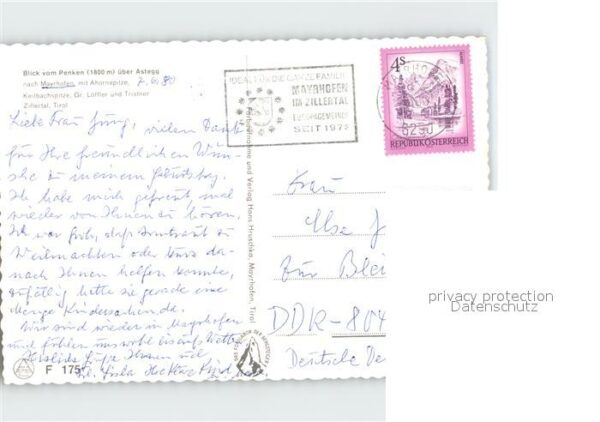 Blick vom Penken (1800 m) über Astegg
nach Mayrhofen, mit Ahornspitze,
Keilbachspitze, Gr. Löffler und Tristner
Zillertal, Tirol
7.6.80
IDEAL FÜR DIE GANZE FAMILIE
MAYRHOFEN
IM ZILLERTAL
EUROPAGEMEINDE
SEIT 1973
4S
REPUBLIK ÖSTERREICH
6290
Liebe Frau Jung, vielen Dank
für Ihre freundlichen Wün-
sche zu meinem Geburtstag.
Ich habe mich gefreut mal
wieder von Ihnen zu hören.
Ich war froh, daß
Weihnachten oder kurz da-
nach Ihnen helfen konnte,
zufällig hatte sie gerade eine
Menge Kindersachen da.
Wir sind wieder in Mayrhofen
und fühlen uns wohl bis auf Wetter
Herzliche Grüße Ihnen
F 175
Verlag Hans Hruschka, Mayrhofen, Tirol
Frau
Ilse J
Zur Blei
DDR-804
Deutsche De
privacy protection
Datenschutz